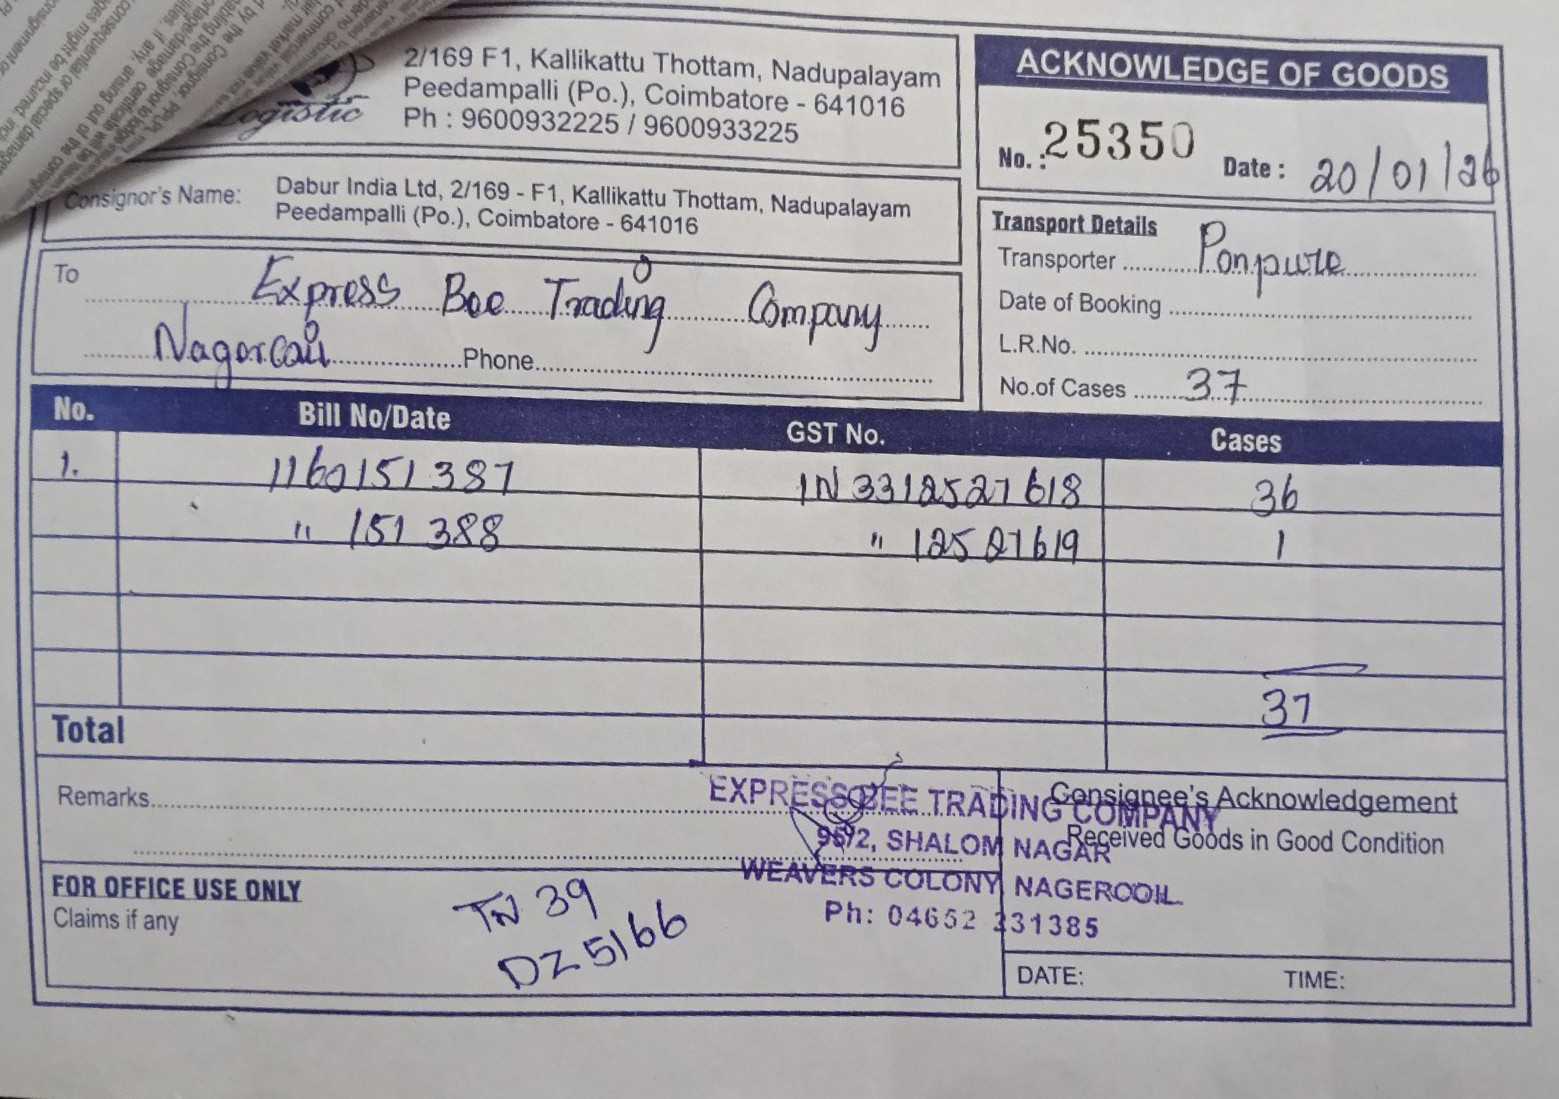 2/169 F1, Kallikattu Thottam, Nadupalayam
Peedampalli (Po.), Coimbatore - 641016
Ph : 9600932225 / 9600933225
Logistic
ACKNOWLEDGE OF GOODS
No. : 25350 Date : 20/01/26
Consignor's Name: Dabur India Ltd, 2/169 - F1, Kallikattu Thottam, Nadupalayam
Peedampalli (Po.), Coimbatore - 641016
To Express Bee Trading Company
Nagorcoil Phone
Transport Details
Transporter Ponpure
Date of Booking
L.R.No.
No.of Cases 37
No. Bill No/Date GST No. Cases
1. 1160151387 IN 3312527618 36
" 151388 " 12527619 1
37
Total
Remarks
EXPRESS BEE TRADING COMPANY
95/2, SHALOM NAGAR
WEAVERS COLONY NAGERCOIL
Ph: 04652 231385
Consignee's Acknowledgement
Received Goods in Good Condition
FOR OFFICE USE ONLY
Claims if any
TN 39
DZ 5166
DATE: TIME: